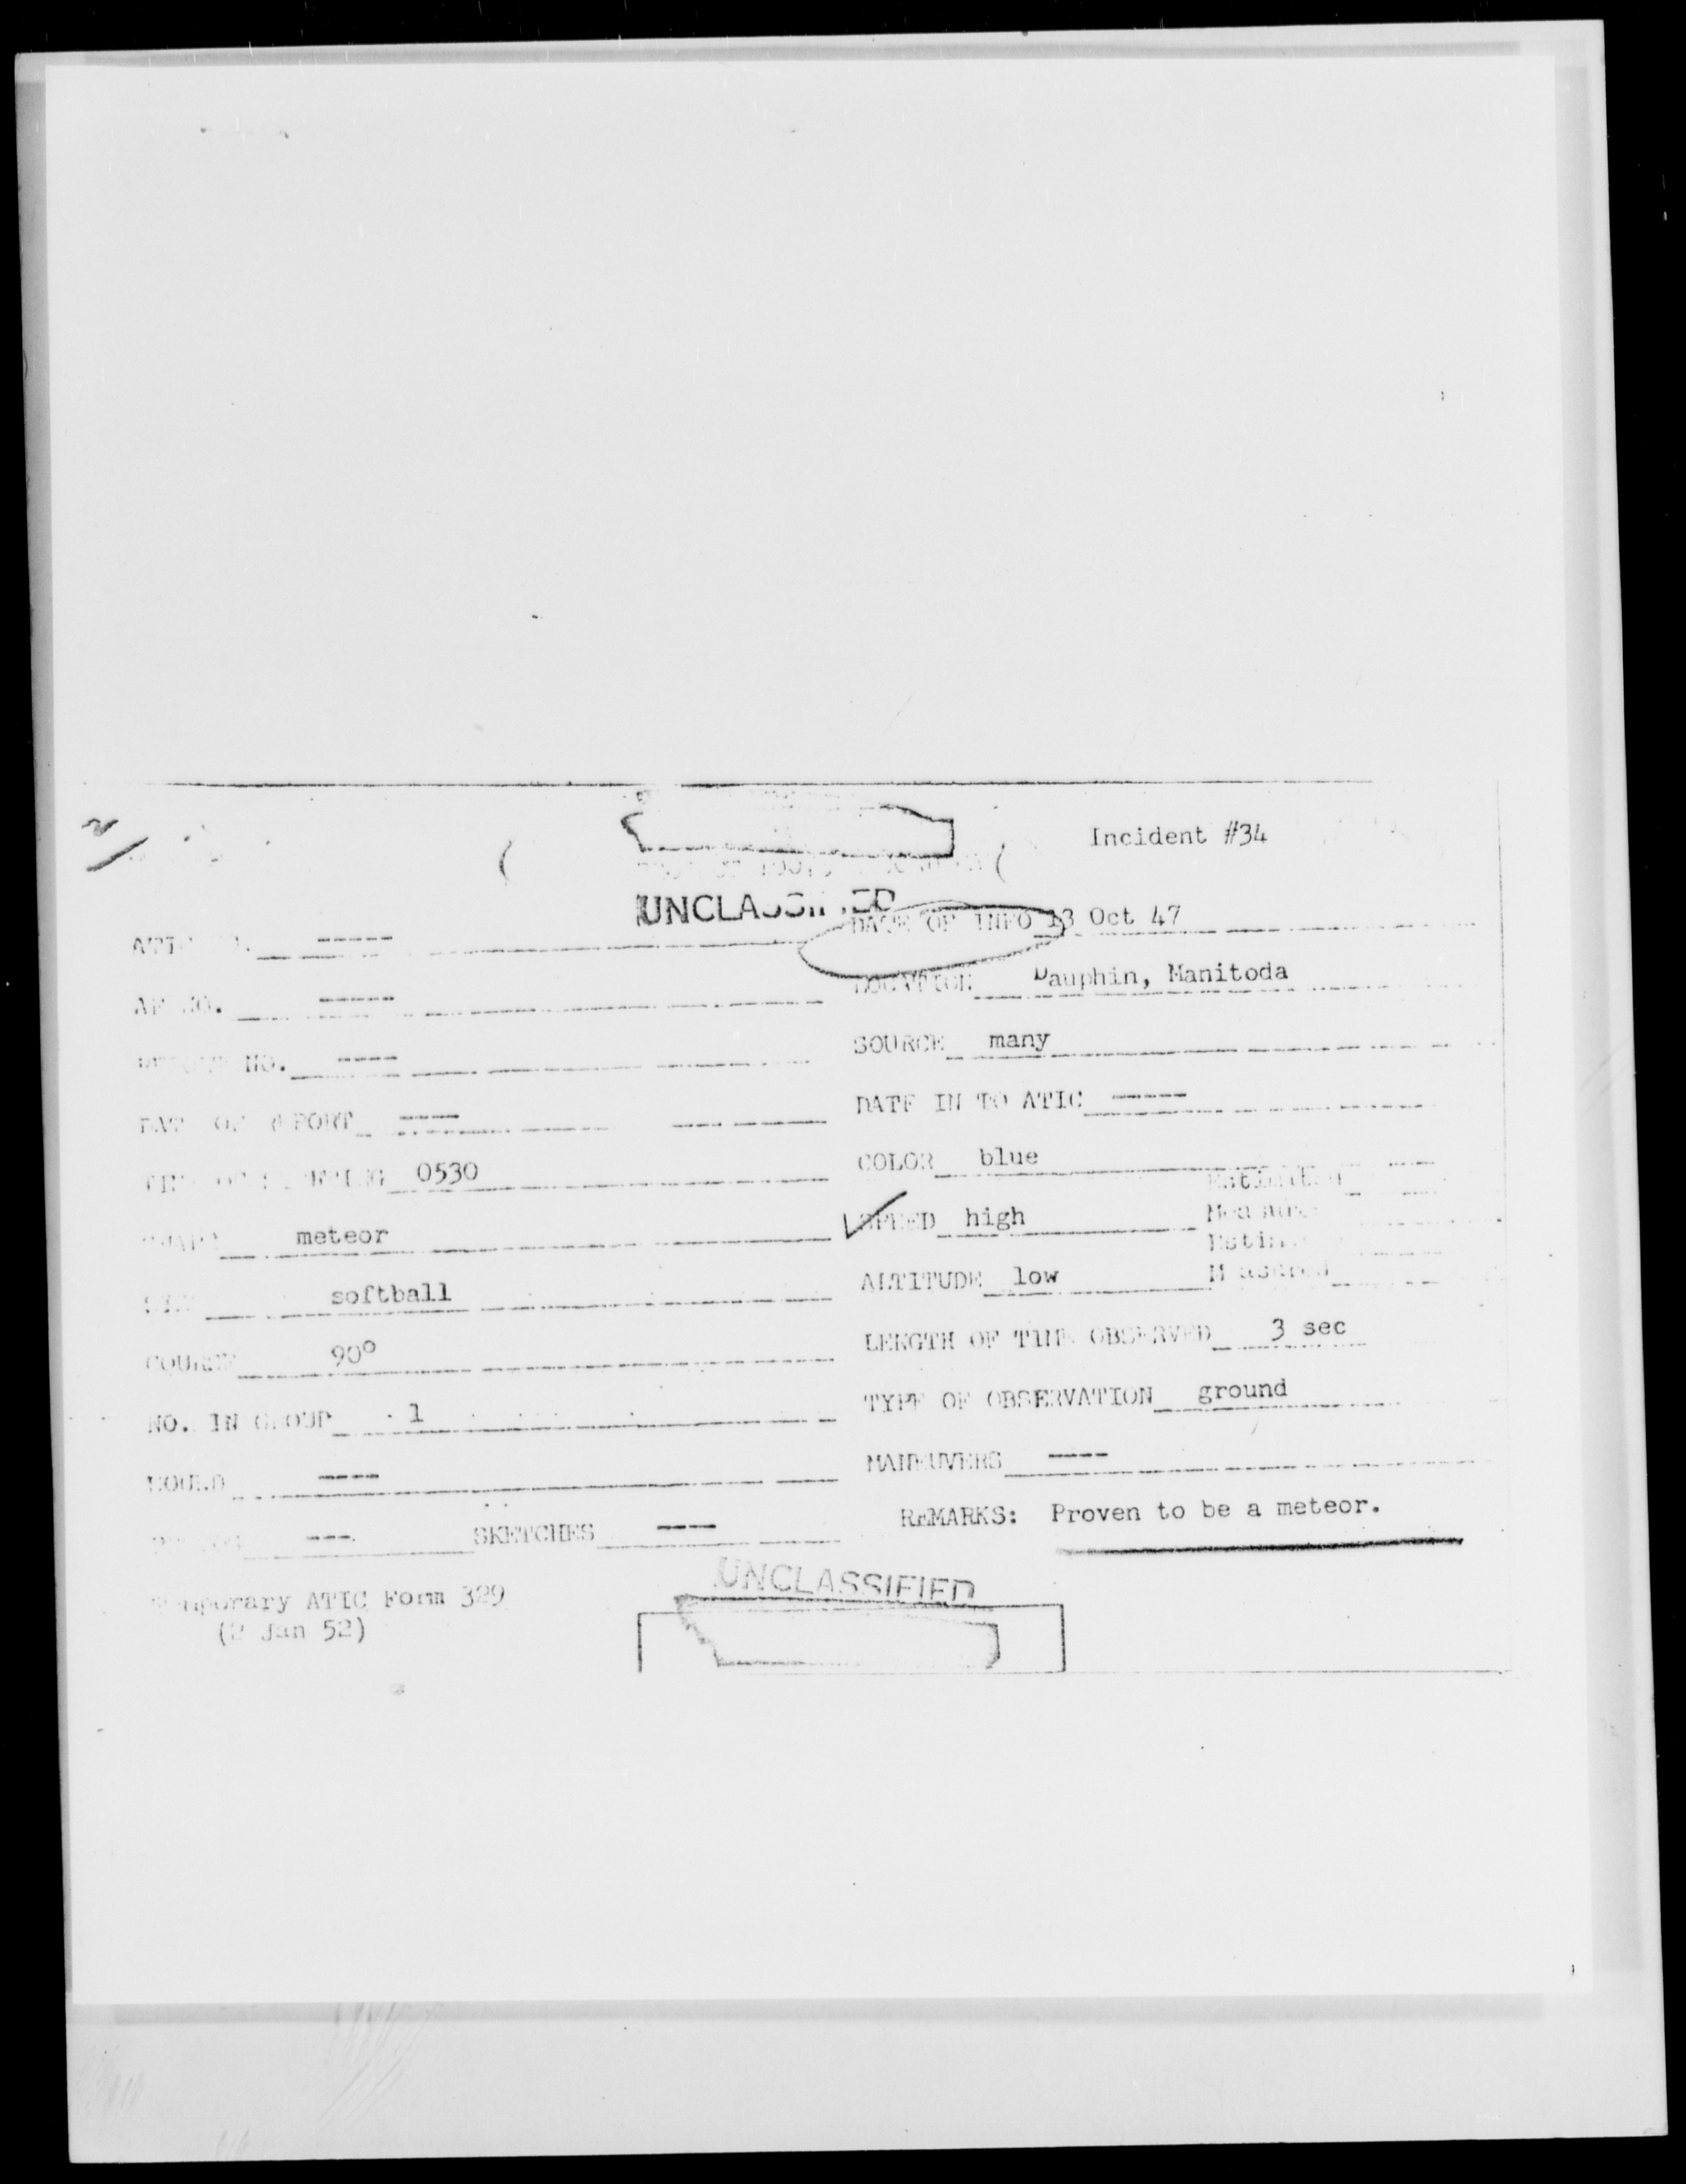 Incident #34
UNCLASSIFIED
DATE OF INFO 13 Oct 47
-----
LOCATION Dauphin, Manitoda
AF NO. -----
SOURCE many
NO. ----
DATE IN TO ATIC -----
DATE OF REPORT ----
COLOR blue
TIME OF SIGHTING 0530
Estimated
SPEED high
Measured
SHAPE meteor
ALTITUDE low
Measured
SIZE softball
LENGTH OF TIME OBSERVED 3 sec
COURSE 90°
TYPE OF OBSERVATION ground
NO. IN GROUP 1
MANEUVERS ----
SOUND ----
REMARKS: Proven to be a meteor.
--- SKETCHES ----
UNCLASSIFIED
Temporary ATIC Form 329
(2 Jan 52)